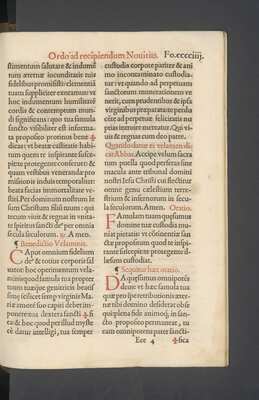 Ordo ad recipiendum Nouitiũ. Fo.cccciiij.
stimentum salutare & indumẽ
tum æternæ iocunditatis tuis
fidelibus promisisti: clementiã
tuam suppliciter exoramus vt
hoc indumentum humilitatẽ
cordis & contemptum mun-
di significans: quo tua famula
sancto visibiliter est informa-
ta proposito propitius bene ✠
dicas: vt beatæ castitatis habi-
tum quem te inspirante susce-
pit: te protegente custodiat: &
quam vestibus venerandæ pro
missionis induis temporaliter:
beata facias immortalitate ve-
stiri. Per dominum nostrum Ie
sum Christum filiũ tuum: qui
tecum viuit & regnat in vnita-
te spiritus sancti deus per omnia
secula seculorum. ℟. Amen.
¶ Benedictio Velaminis.
Caput omnium fidelium
deus & totius corporis sal
uator: hoc operimentum vela-
minis quod famula tua propter
tuum tuæque genitricis beatis
simæ scilicet semp virginis Ma-
riæ amorẽ suo capiti debet im-
ponere: tua dextera sancti ✠ fi
ca: & hoc quod per illud mystic
ce datur intelligi, tua semper
custodia corpore pariter & ani
mo incontaminato custodia-
tur: vt quando ad perpetuam
sanctorum remunerationem ve
nerit, cum prudentibus & ipsa
virginibus præparata: te perdu
cente ad perpetuæ felicitatis nu
ptias introire mereatur. Qui vi-
uis & regnas cum deo patre.
Quando datur ei velamen di-
cat Abbas. Accipe velum sacra
tum puella quod perferas sine
macula ante tribunal domini
nostri Iesu Christi cui flectitur
omne genu cælestium terre-
strium & infernorum in secu-
la seculorum. Amen. Oratio.
Famulam tuam quæsumus
domine tuæ custodia mu-
niat pietatis: vt virginitatis san
ctæ propositum quod te inspi-
rante suscepit: te protegente il-
læsum custodiat.
¶ Sequitur hæc oratio.
Da quæsumus omnipotẽs
deus: vt hæc famula tua
quæ pro spe retributionis æter-
næ tibi domino desiderat se
plena fide animoq, in san-
cto proposito permaneat, tu
eam omnipotens pater sancti-
Eee 4 ✠fica